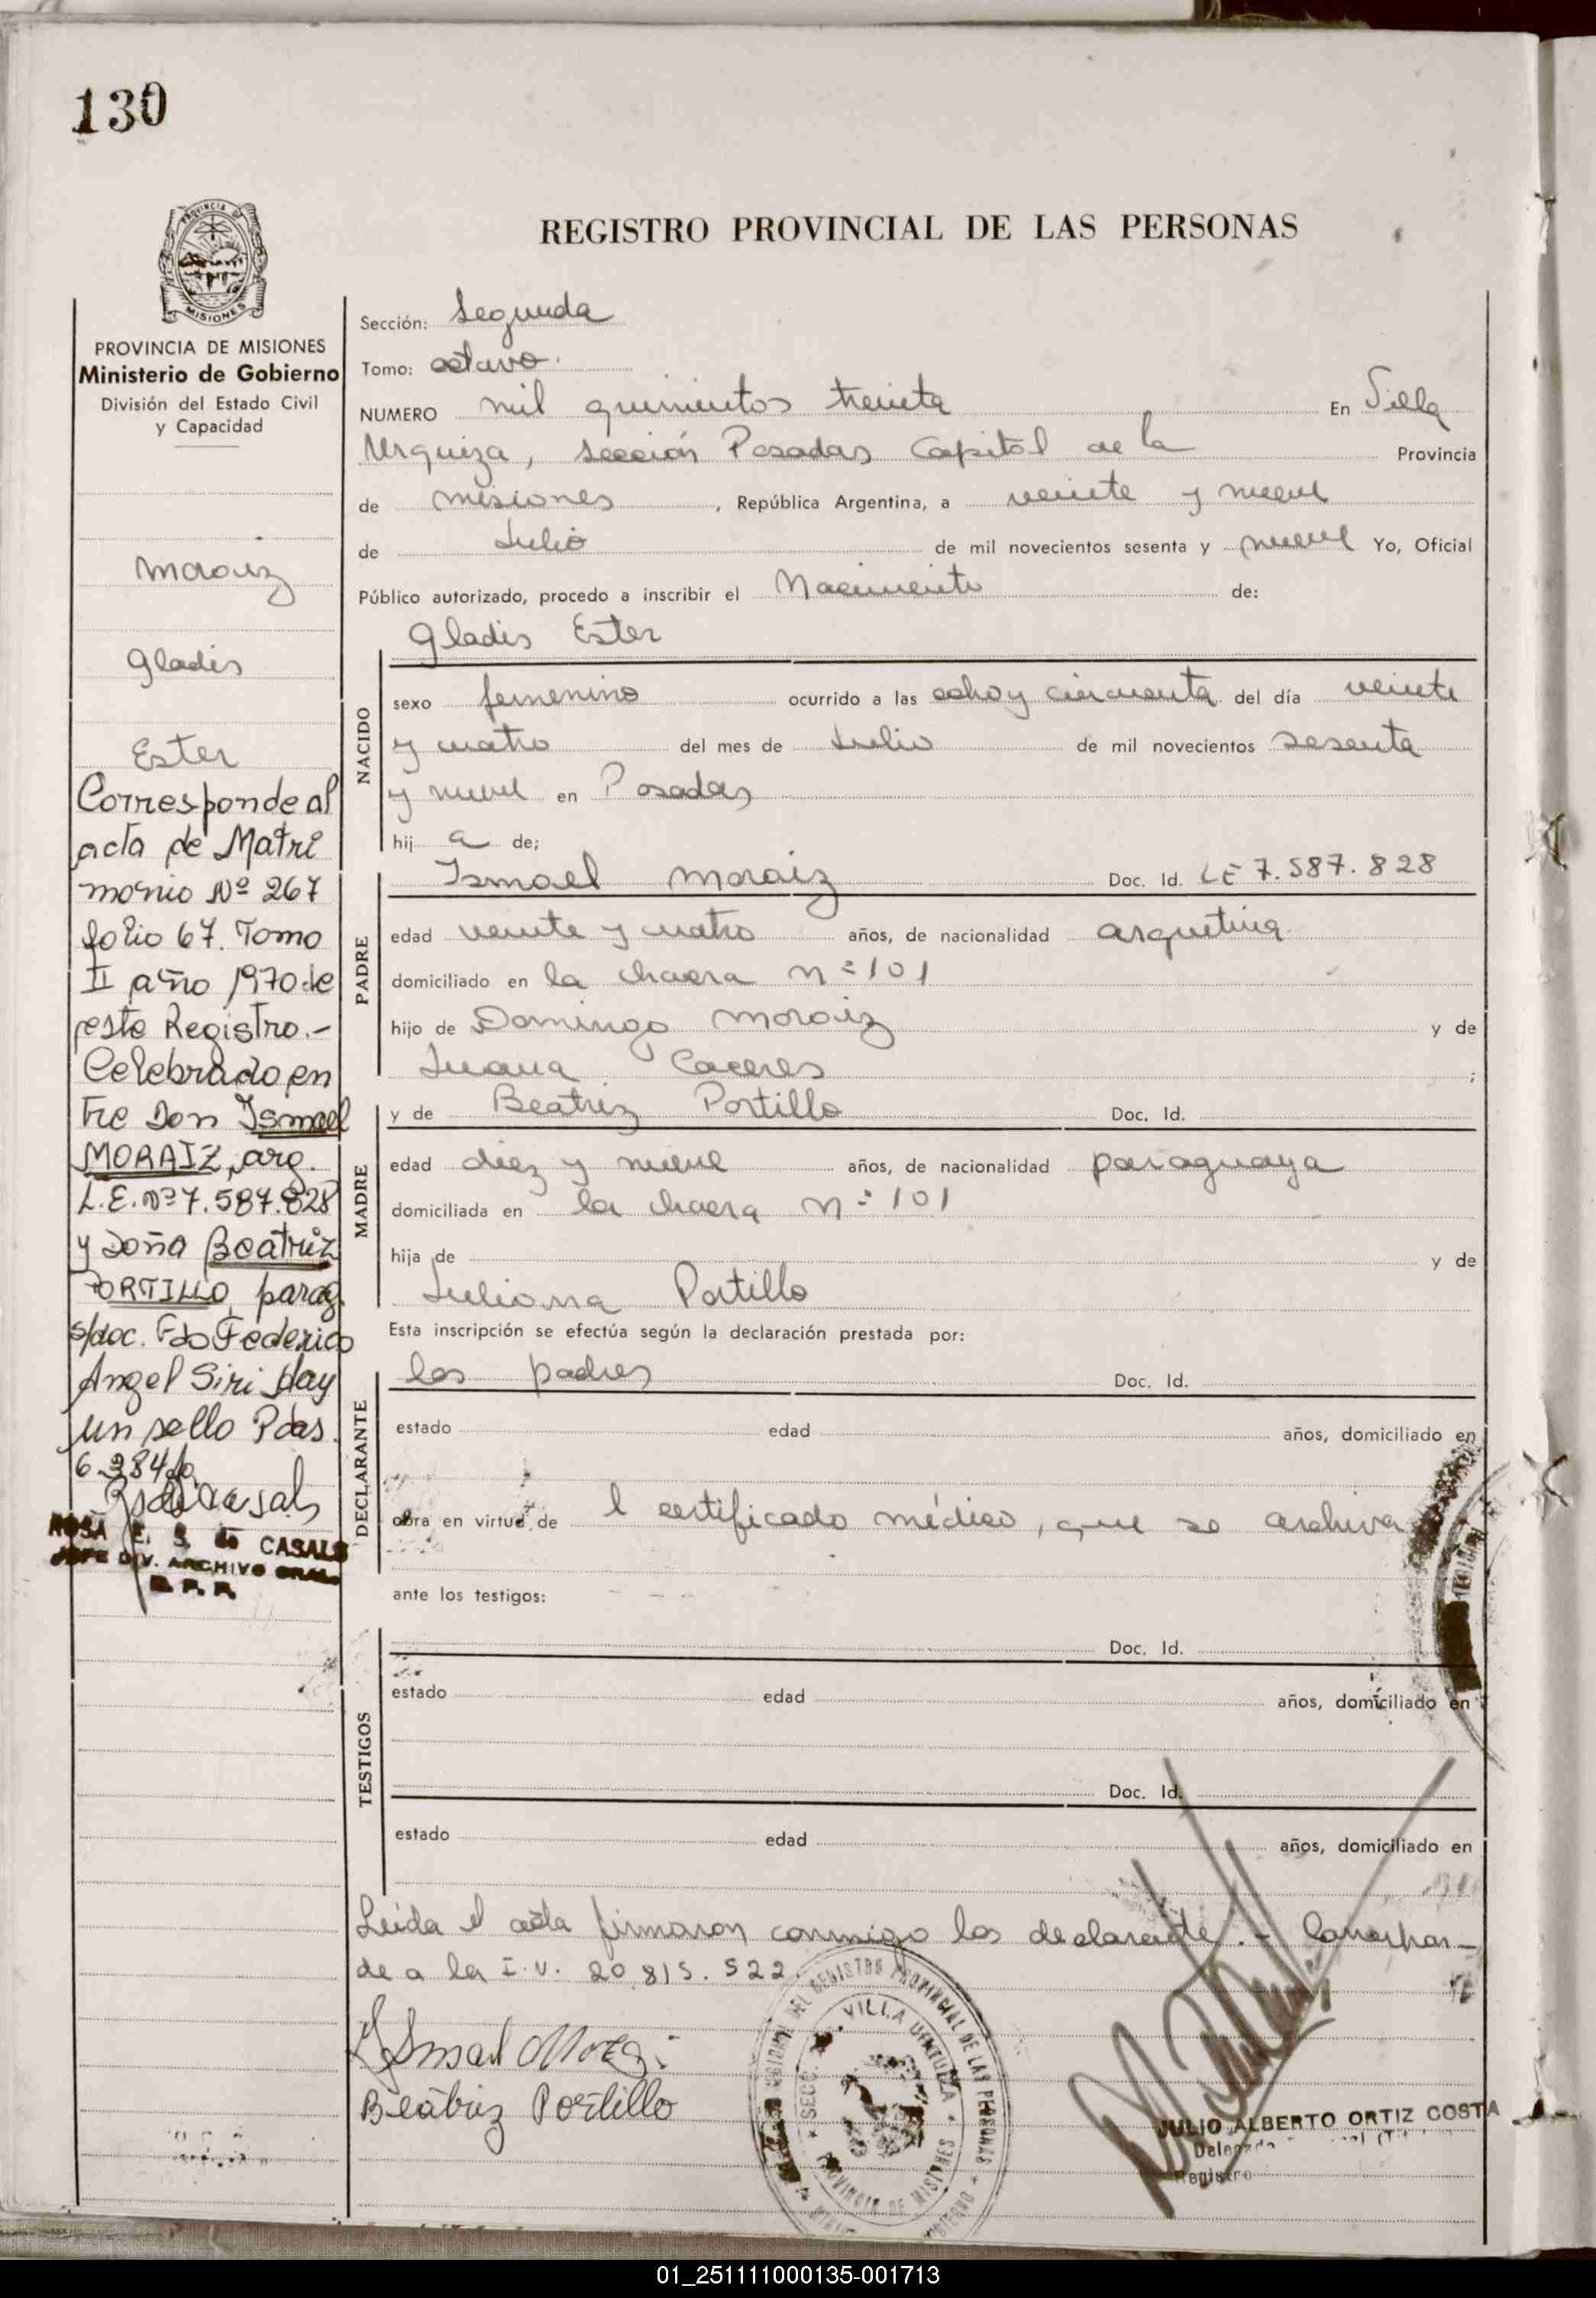 130
PROVINCIA DE
MISIONES
PROVINCIA DE MISIONES
Ministerio de Gobierno
División del Estado Civil
y Capacidad
Moraiz
Gladis
Ester
Corresponde al
acta de Matri
monio Nº 267
folio 67. Tomo
II año 1970 de
este Registro.-
Celebrado en
tre Don Ismael
MORAIZ, arg.
L.E. Nº 7.587.828
y Doña Beatriz
PORTILLO, parag.
s/doc. Fdo Federico
Angel Siri Hay
un sello Pdas.
ROSA E. S. de CASALS
JEFE DIV. ARCHIVO GRAL.
R. P. P.
REGISTRO PROVINCIAL DE LAS PERSONAS
Sección: Segunda
Tomo: octavo.
NUMERO mil quinientos treinta En Villa
Urquiza, sección Posadas Capital de la Provincia
de misiones, República Argentina, a veinte y nueve
de Julio de mil novecientos sesenta y nueve Yo, Oficial
Público autorizado, procedo a inscribir el Nacimiento de:
Gladis Ester
NACIDO
sexo femenino ocurrido a las ocho y cincuenta del día veinte
y cuatro del mes de Julio de mil novecientos sesenta
y nueve en Posadas
hij a de;
Ismael Moraiz Doc. Id. LE 7.587.828
PADRE
edad veinte y cuatro años, de nacionalidad argentina
domiciliado en la chacra nº 101
hijo de Domingo Moraiz y de
Juana Caceres ;
y de Beatriz Portillo Doc. Id.
MADRE
edad diez y nueve años, de nacionalidad paraguaya
domiciliada en la chacra nº 101
hija de y de
Juliana Portillo
Esta inscripción se efectúa según la declaración prestada por:
los padres Doc. Id.
DECLARANTE
estado edad años, domiciliado en
obra en virtud de l certificado médico, que se archiva
ante los testigos:
Doc. Id.
TESTIGOS
estado edad años, domiciliado en
Doc. Id.
estado edad años, domiciliado en
Leida el acta firmaron conmigo los declarante.- Correspon-
de a la I.V. 20.815.522.
Ismael
Beatriz Portillo
REGISTRO PROVINCIAL DE LAS PERSONAS
SECC. VILLA URQUIZA
PROVINCIA DE MISIONES
JULIO ALBERTO ORTIZ COSTA
Registro
01_251111000135-001713